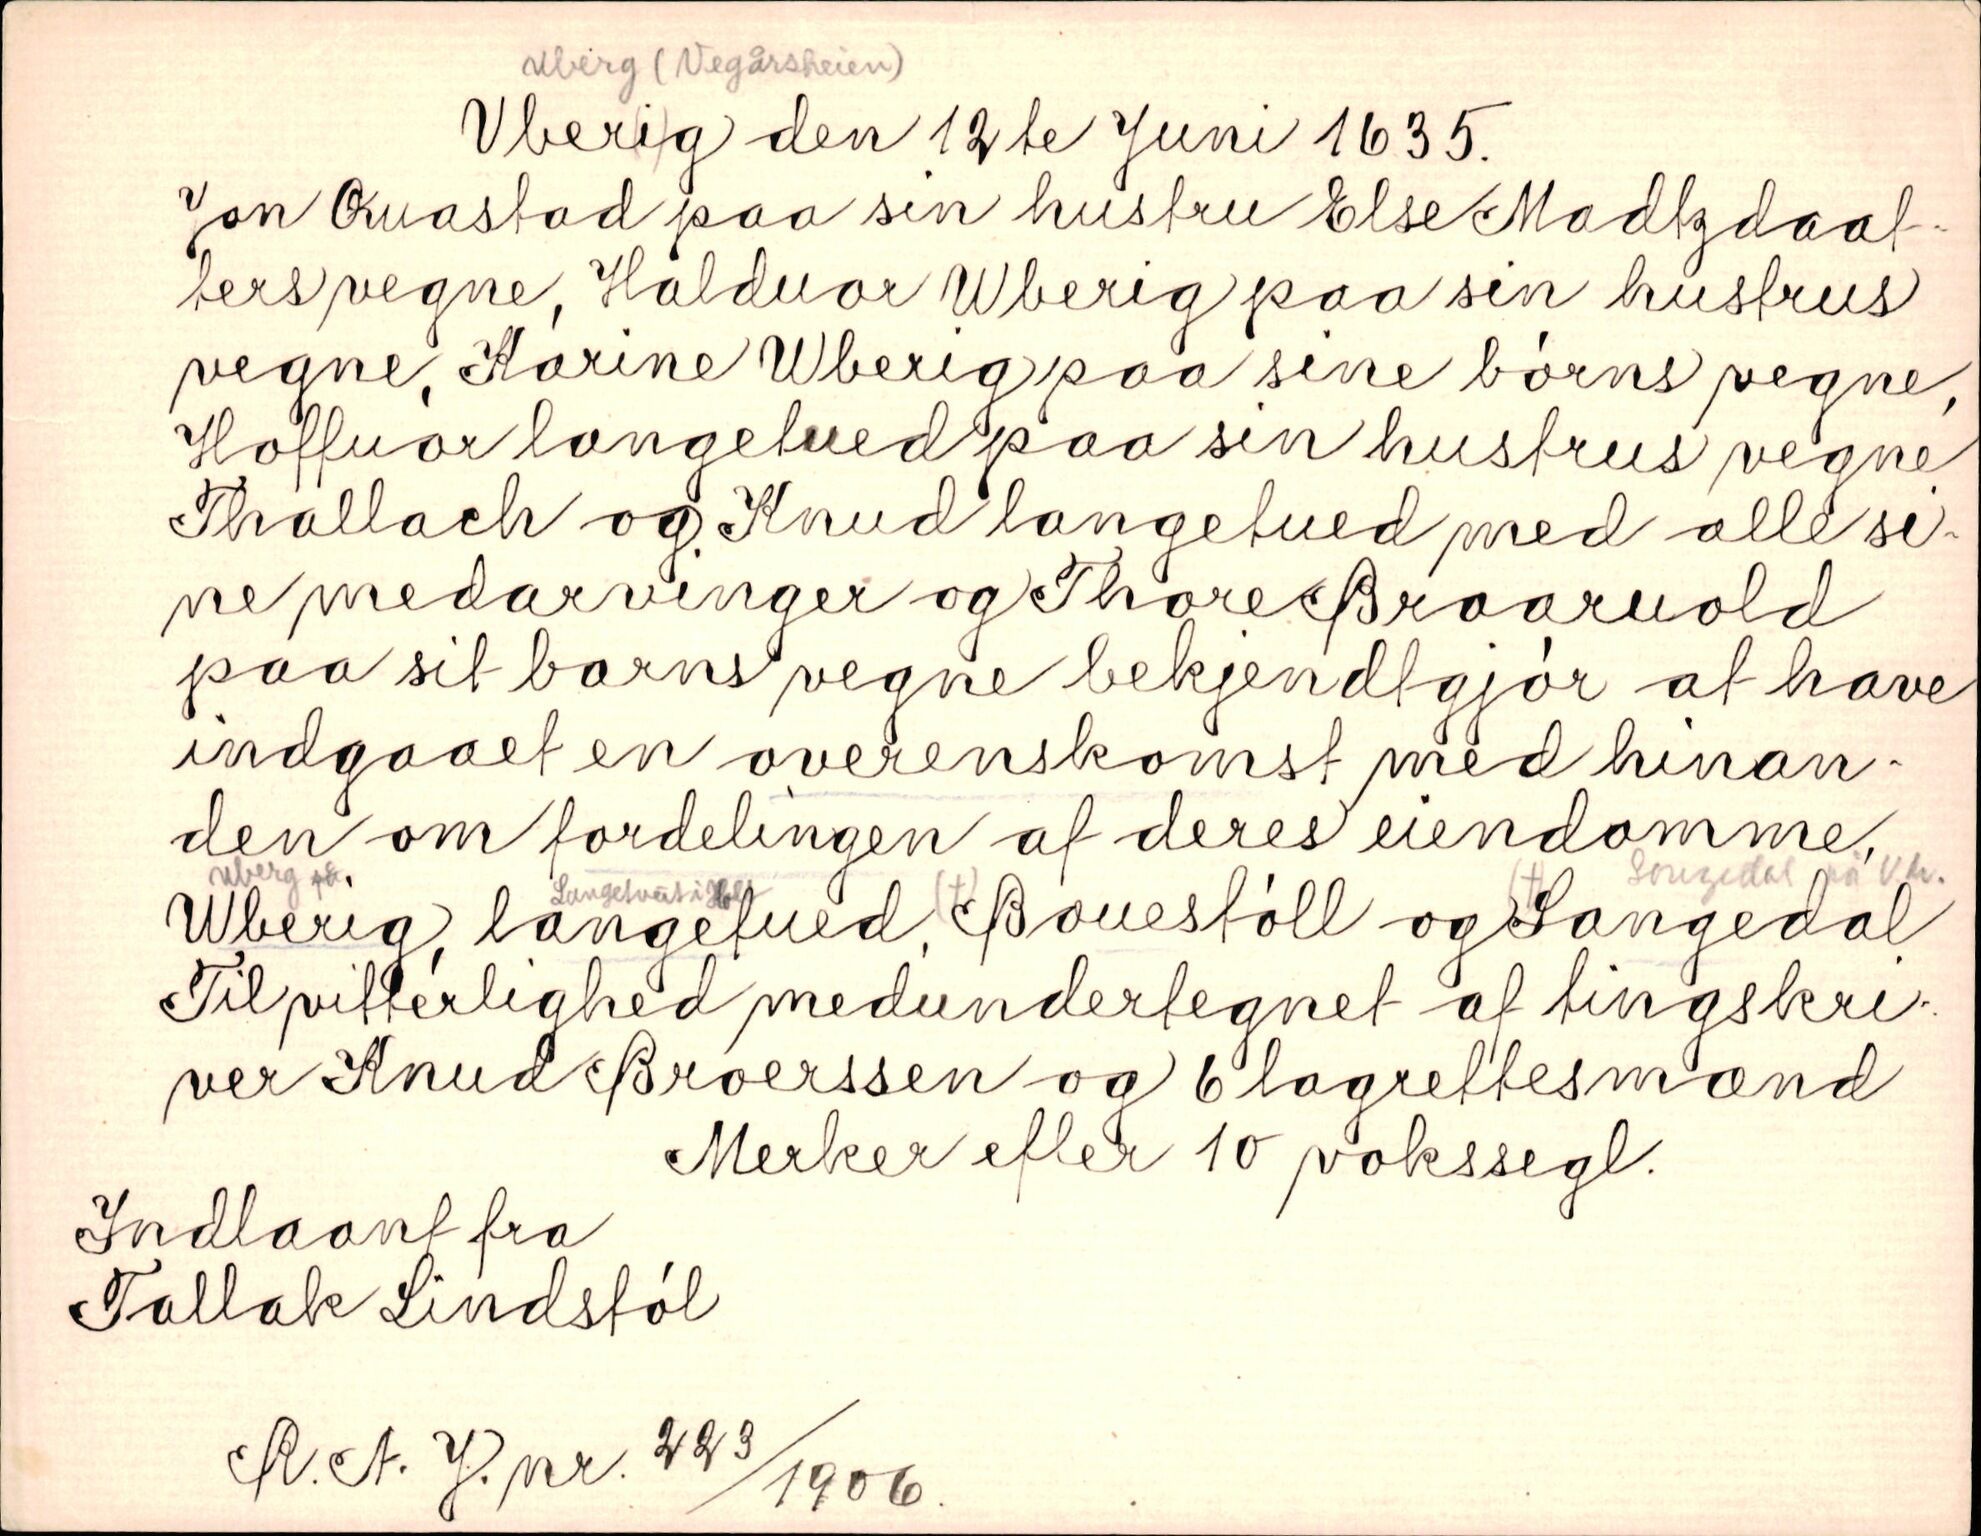 Uberg (Vegårsheien)
Vberig den 12te Juni 1635.
Jon Quastad paa sin hustru Else Madtzdaat-
ters vegne, Halduor Wberig paa sin hustrus
vegne, Karine Wberig paa sine börns vegne,
Hoffuor langetued paa sin hustrus vegne
Thallach og Knud langetued med alle si-
ne medarvinger og Thore Braaruold
paa sit barns vegne bekjendtgjör at have
indgaaet en overenskomst med hinan-
den om fordelingen af deres eiendomme,
Uberg Langetveit i Holt (+) (+) Songedal på V.h.
Wberig, langetued, Bouestöll og Sangedal
Til vitterlighed medundertegnet af tingskri-
ver Knud Broerssen og 6 lagrettesmænd
Merker efter 10 vokssegl.
Indlaant fra
Tallak Lindstöl
R. A. J. nr. 223/1906.